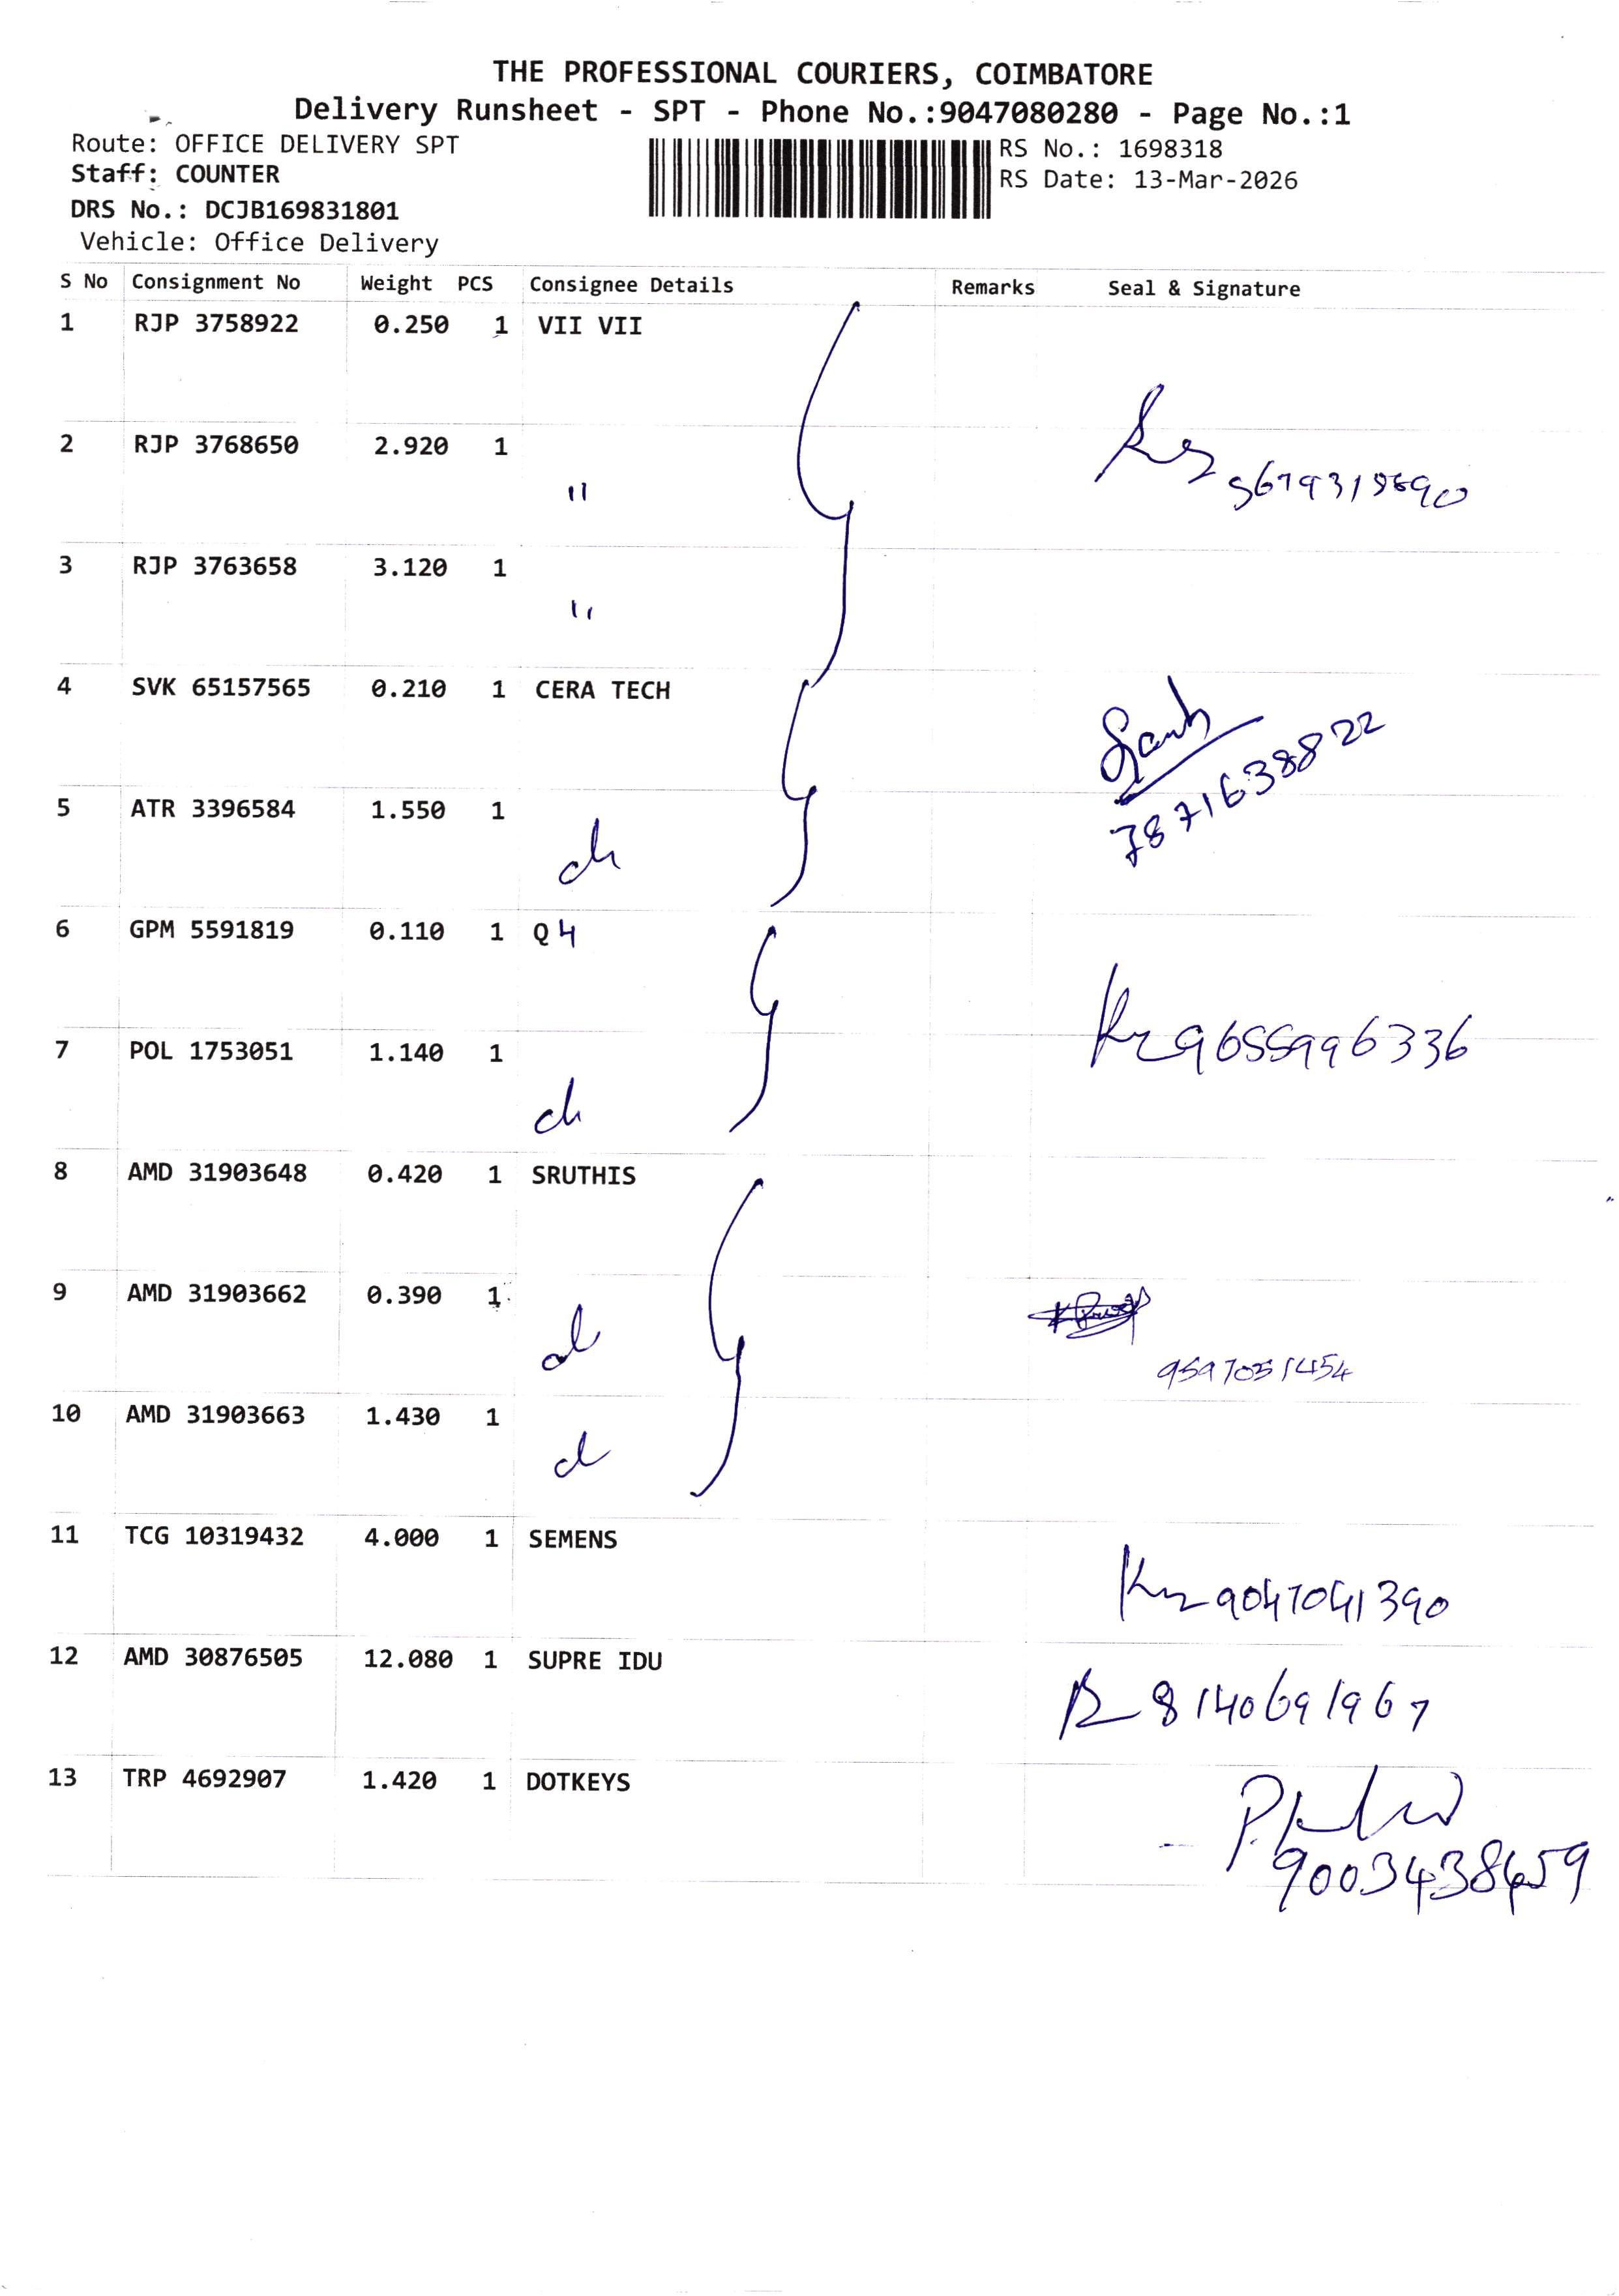 THE PROFESSIONAL COURIERS, COIMBATORE
Delivery Runsheet - SPT - Phone No.:9047080280 - Page No.:1
Route: OFFICE DELIVERY SPT
RS No.: 1698318
Staff: COUNTER
RS Date: 13-Mar-2026
DRS No.: DCJB169831801
Vehicle: Office Delivery
S No Consignment No Weight PCS Consignee Details Remarks Seal & Signature
1 RJP 3758922 0.250 1 VII VII
2 RJP 3768650 2.920 1
"
3 RJP 3763658 3.120 1
"
4 SVK 65157565 0.210 1 CERA TECH
5 ATR 3396584 1.550 1
7871638822
6 GPM 5591819 0.110 1 Q4
7 POL 1753051 1.140 1
9655996336
8 AMD 31903648 0.420 1 SRUTHIS
9 AMD 31903662 0.390 1
9597051454
10 AMD 31903663 1.430 1
11 TCG 10319432 4.000 1 SEMENS
9047041390
12 AMD 30876505 12.080 1 SUPRE IDU
8140691967
13 TRP 4692907 1.420 1 DOTKEYS
9003438459